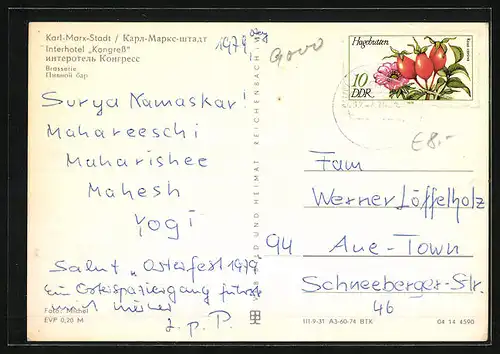 Karl-Marx-Stadt / Карл-Маркс-штадт
Interhotel „Kongreß"
интеротель Конгресс
Brasserie
Пивной бар
1979
Hagebutten
10
DDR
€8,-
Surya Namaskar!
Mahareeschi
Maharishee
Mahesh
Yogi
Salut „Osterfest 1979
Ein Osterspaziergang
z. p. P.
Foto: Mithel
EVP 0,20 M
BILD UND HEIMAT REICHENBACH
Fam
Werner Löffelholz
94 Aue-Town
Schneeberger-Str.
46
III-9-31 A3-60-74 BTX
04 14 4590